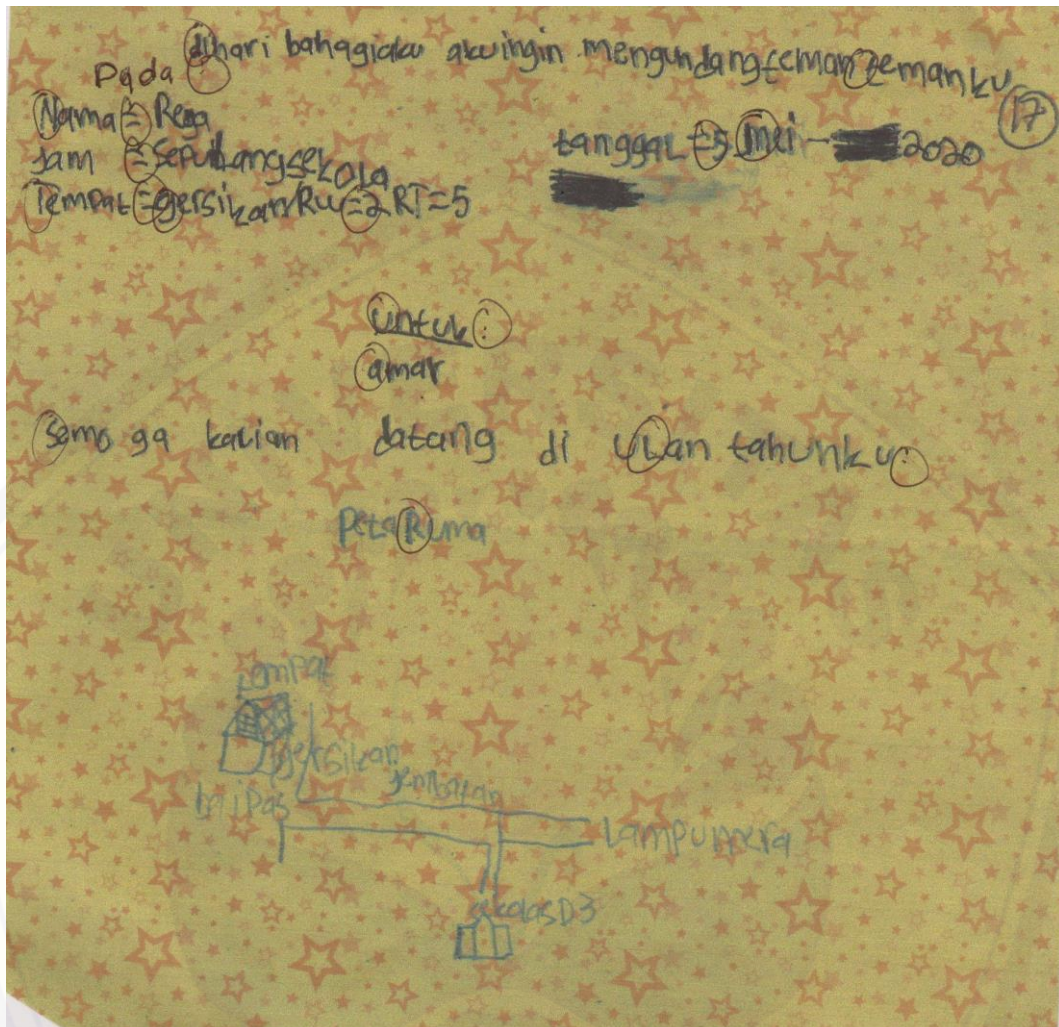 dihari bahagiaku aku ingin mengundang teman temanku
Pada :
17
Nama = Rega
tanggal = 5 mei - 2020
Jam = Sepulang sekola
Tempat = gersikan/Rw = 2 RT = 5
untuk :
amar
semo ga kalian datang di ulan tahunku :
Peta Ruma
tempat
gersikan
jembatan
baipas
Lampu mera
sekolas D3